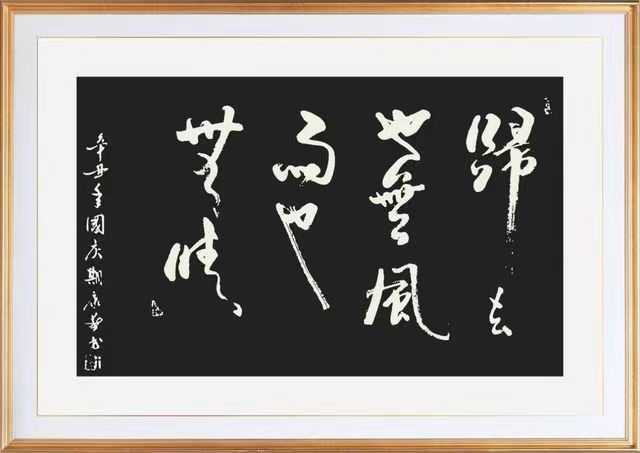 歸去
也無風
雨也
無晴
辛丑年國庆期